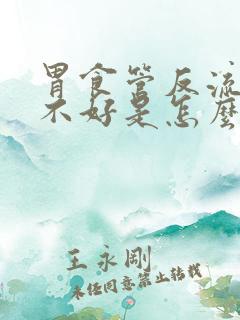 胃食管反流
不好是怎麼
王永剛
未经同意禁止转载